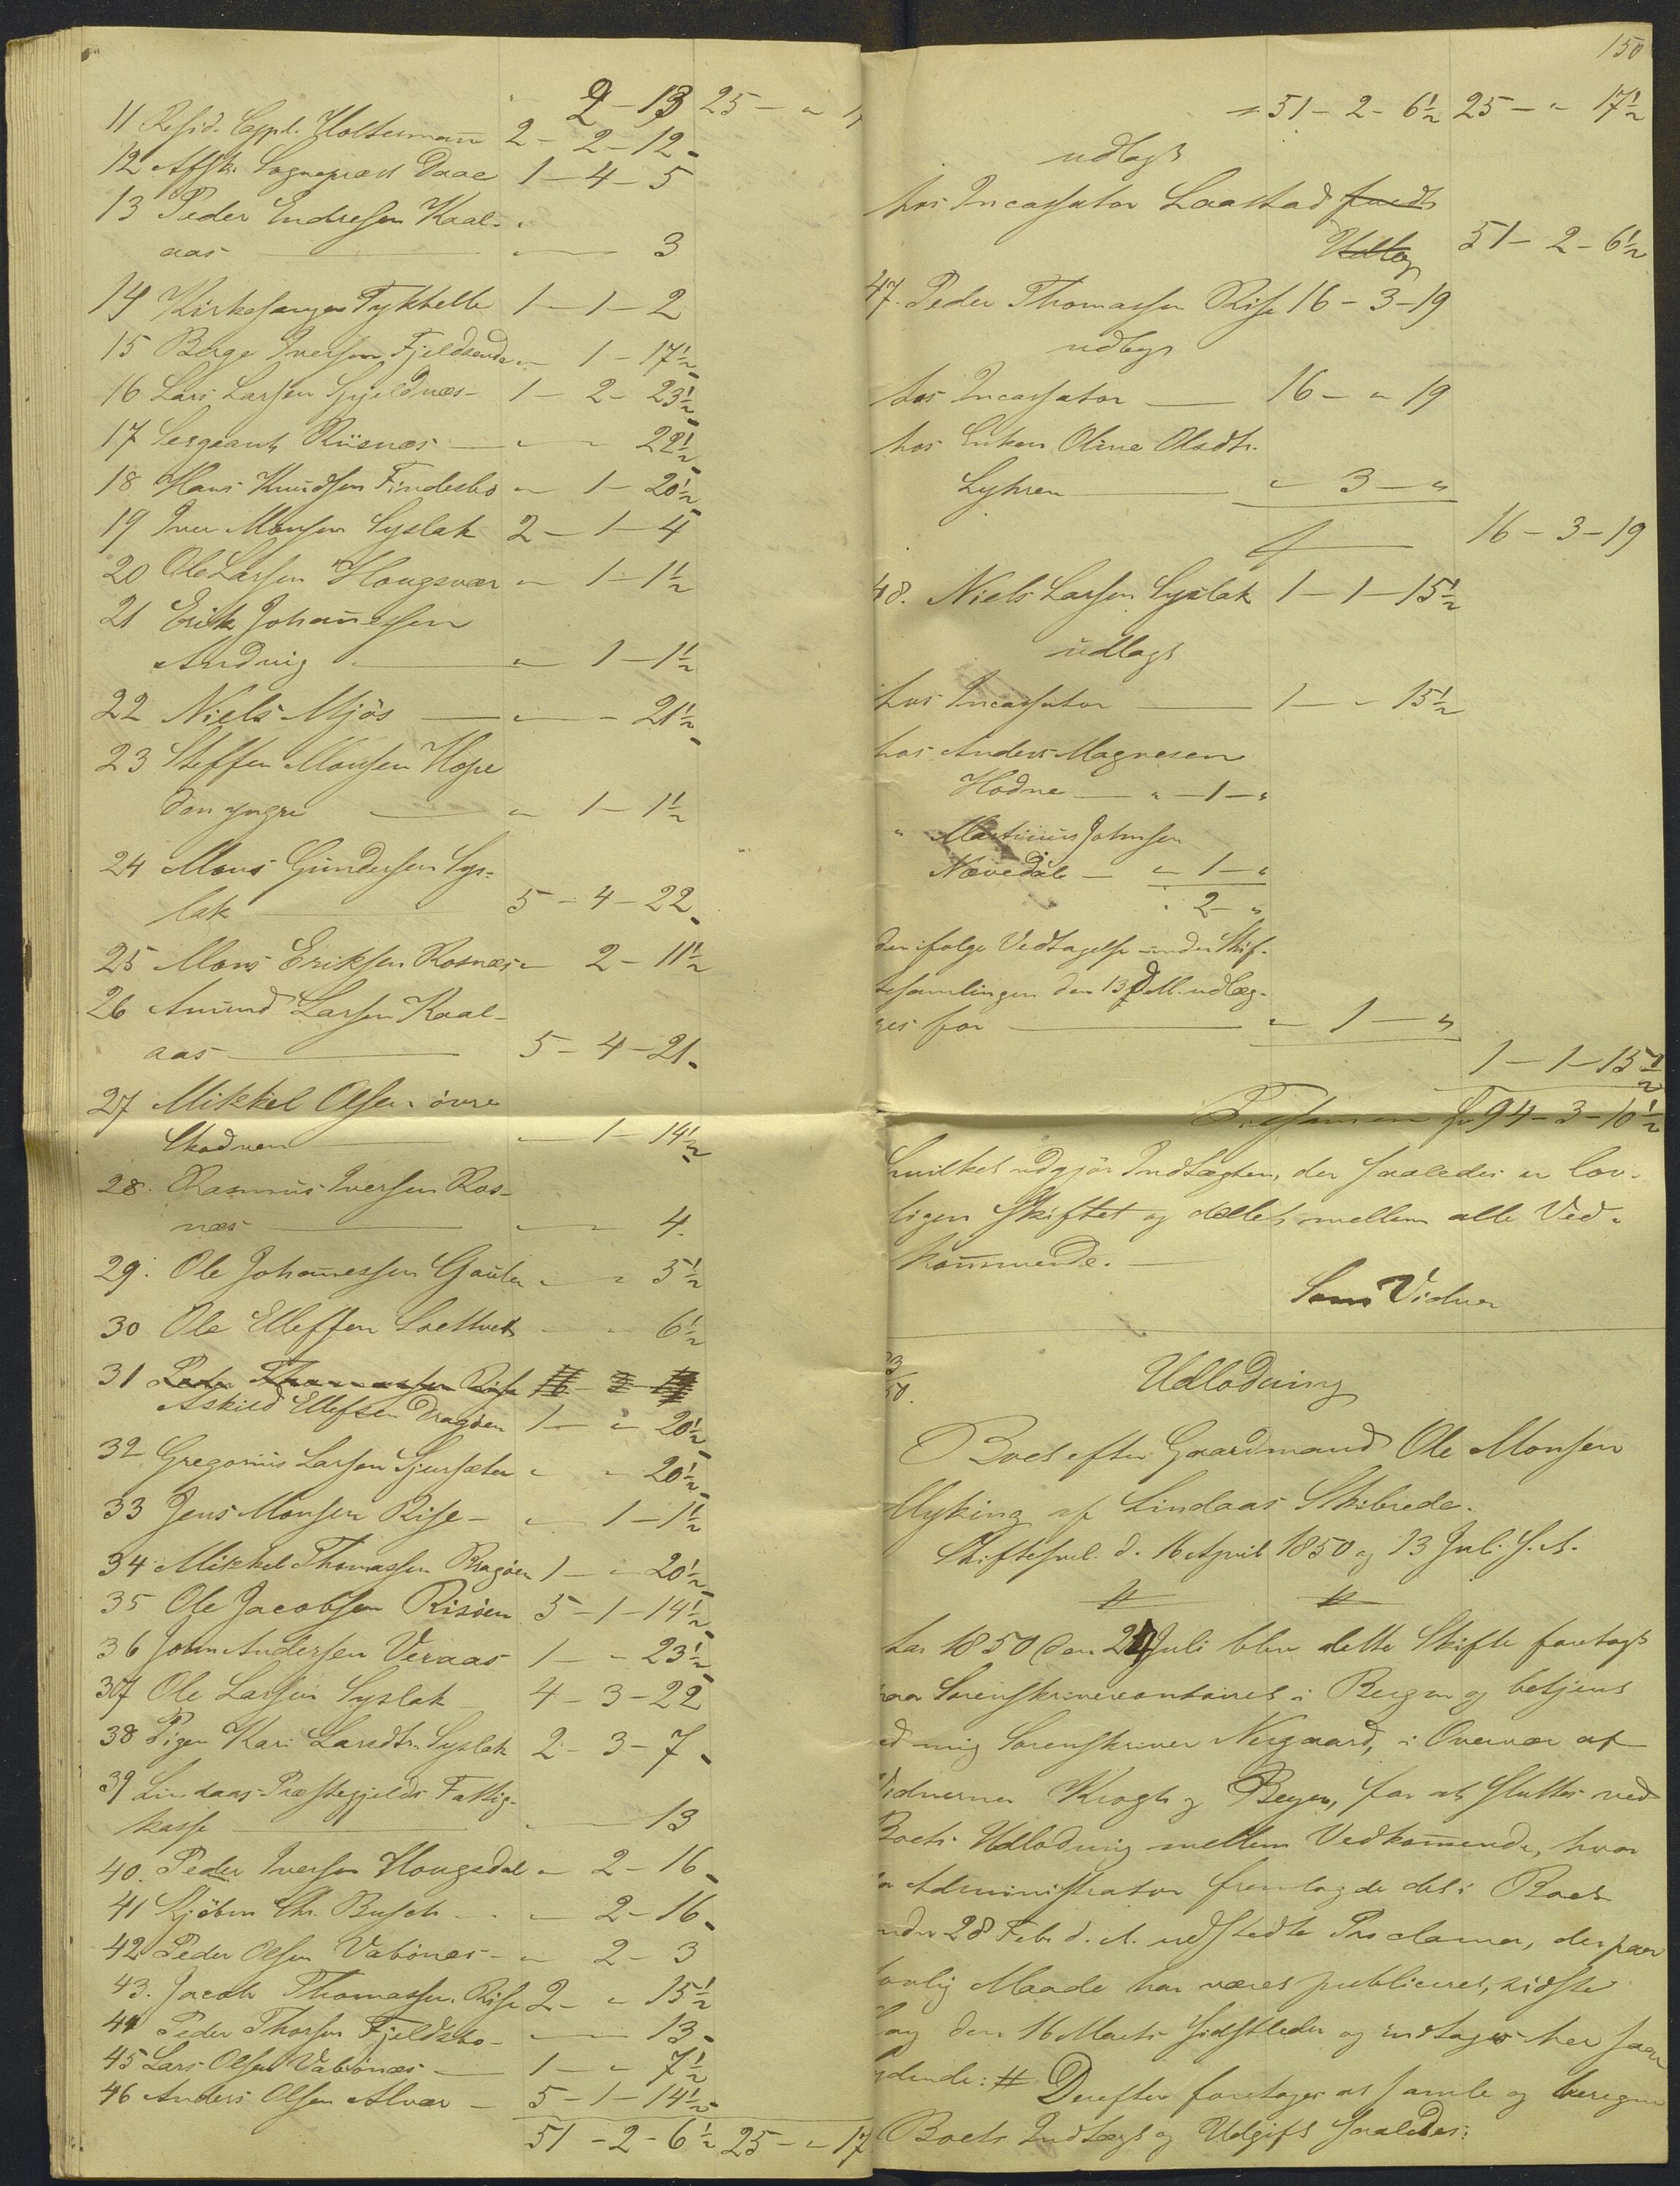 2 - 13 25 - " 17
11 Resid. Cappl. Holtermann 2 - 2 - 12
12 Afsk. Sognepræst Daae 1 - 4 - 5
13 Peder Endresen Kaal-
aas " - " - 3
14 Kirkesanger Tykhelle 1 - 1 - 2
15 Børge Iversen Fjeldsende " - 1 - 17½
16 Lars Larsen Gjeldnæs - 1 - 2 - 23½
17 Sergeant Riisnæs - " - " 22½
18 Hans Knudsen Findesbø " - 1 - 20½
19 Iver Monsen Syslak 2 - 1 - 4
20 Ole Larsen Hougsvær " - 1 - 1½
21 Erik Johannessen
Andvig " - 1 - 1½
22 Niels Mjøs " - " - 21½
23 Steffen Monsen Hope
den yngre " - 1 - 1½
24 Mons Gundersen Sys=
lak 5 - 4 - 22
25 Mons Eriksen Rosnæs " 2 - 11½
26 Amund Larsen Kaal-
aas 5 - 4 - 21
27 Mikkel Olsen øvre
Skodven " - 1 - 14½
28. Rasmus Iversen Ros-
næs " - " 4.
29. Ole Johannessen Gaulen " - " 5½
30 Ole Elleffsen 6½
31 Peder Thomassen Rise 16 - 3 - 19
Askild Ellefsen Dragøen 1 - " - 20½
32 Gregorius Larsen Sjursæter " - " 20½
33 Jens Monsen Rise - " 1 - 1½
34 Mikkel Thomassen Dragøen 1 - " 20½
35 Ole Jacobsen Risøen 5 - 1 - 14½
36 John Andersen Veraas 1 - " - 23½
37 Ole Larsen Syslak 4 - 3 - 22
38 Pigen Kari Larsdtr. Syslak 2 - 3 - 7
39 Lindaas Præstegjelds Fattig-
kasse " - 13
40. Peder Iversen Hougsdal " 2 - 16
41 Kjøbm Chr. Busch " 2 - 16
42 Peder Olsen Vabønæs - " 2 - 3
43. Jacob Thomassen Rise 2 - " 15½
44 Peder Thorsen Fjeldsbø - " - 13
45 Lars Olsen Vabønæs - 1 - " 7½
46 Anders Olsen Alvær - 5 - 1 - 14½
51 - 2 - 6½ 25 - " 17
150
51 - 2 - 6½ 25 - " 17½
udlagt
hos Incassator Laastad
Udlag 51 - 2 - 6½
47. Peder Thomassen Rise 16 - 3 - 19
udlagt
hos Incassator - 16 - " 19
hos Enken Oline Olsdtr.
Lyhren " 3 - "
16 - 3 - 19
48. Niels Larsen Syslak 1 - 1 - 15½
udlagt
hos Incassator - 1 - " 15½
hos Anders Magnesen
Hodne - " - 1 - "
" Martinus Johnsen
Nævedale - " 1 - "
" 2 - "
der ifølge Vedtagelse under Skif-
tesamlingen den 13 d. M. udlæg-
ges for - " 1 - "
1 - 1 - 15½
Tilsammen 94 - 3 - 10½
hvilket udgjør Indtægten, der saaledes er lov-
ligen skiftet og deelet mellem alle Ved-
kommende.
Som Vidner
Udlodning
Boet efter Gaardmand Ole Monsen
Myking af Lindaas Skibrede.
Skiftesml. d. 16 April 1850 og 13 Juli s. A.
# #
Aar 1850 den 24 Juli blev dette Skifte foretaget
paa Sorenskrivercontoiret i Bergen og betjent
ved mig Sorenskriver Nergaard, i Overvær af
Vidnerne Krogh og Beyer, for at sluttes ved
Boets Udlodning mellem Vedkommende, hvor
da Administrator fremlagde det i Boet
under 28 Febr d. A. udstedte Proclama, der paa
lovlig Maade har været publiceret, sidste
Gang den 16 Marts sidstleden og indtages her saa
lydende: # Derefter foretoges at samle og beregne
Boets Indtægt og Udgift saaledes: